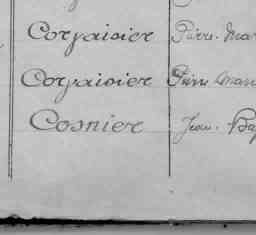 Corvaisier Pierre-Mar
Corvaisier Pierre Mari
Cosnier Jean-Bap